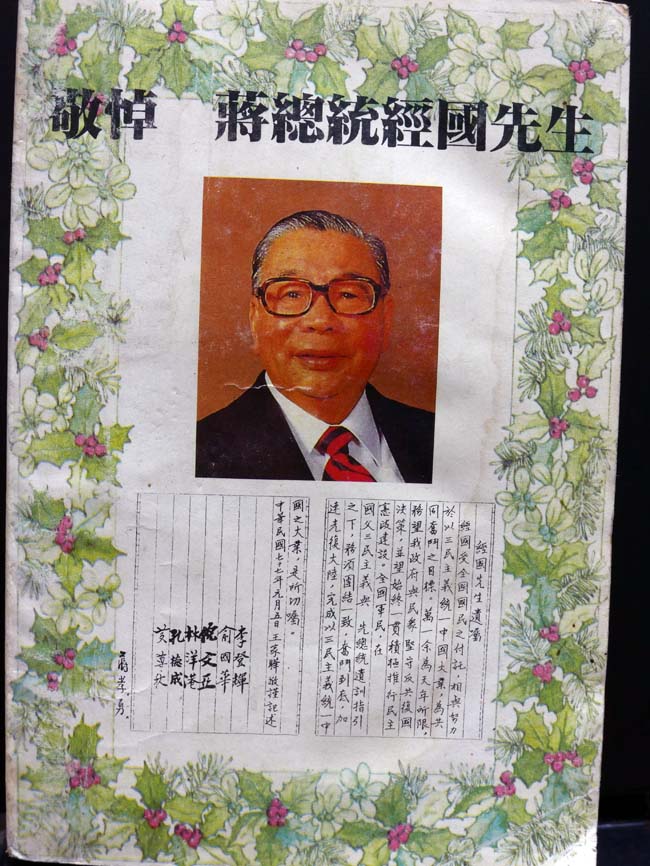 敬悼　蔣總統經國先生
經國先生遺囑
經國受全國國民之付託，相與努力
於以三民主義統一中國大業，為共
同奮鬥之目標。萬一余為天年所限，
務望我政府與民眾堅守反共復國
決策，並望始終一貫積極推行民主
憲政建設。全國軍民，在
國父三民主義與　先總統遺訓指引
之下，務須團結一致，奮鬥到底，加
速光復大陸，完成以三民主義統一中
國之大業，是所切囑。
中華民國七十七年元月五日王家驊敬謹記述
李登輝
俞國華
倪文亞
林洋港
孔德成
蔣孝勇